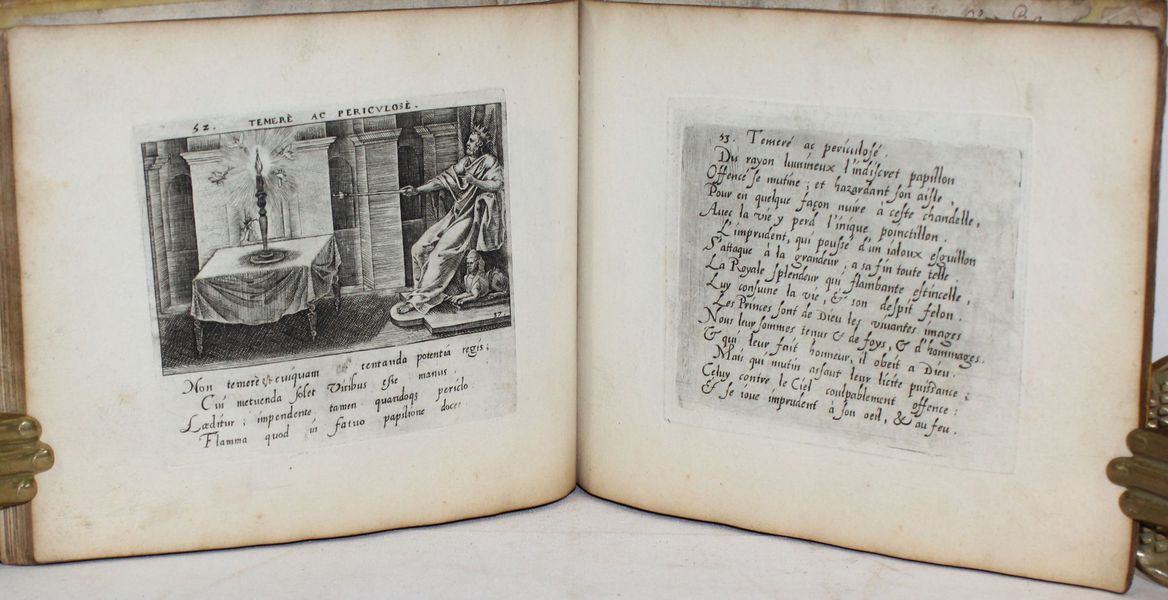 52. TEMERÈ AC PERICVLOSÈ.
Non temerè cuiquam tentanda potentia regis;
Cui metuenda solet Viribus esse manus.
Læditur; impendente tamen quandoqꝫ periclo.
Flamma quod in fatuo papilione docet
53. Temeré ac periculosé.
Du rayon lumineux l'indiscret papillon
Offencé se mutine; et hazardant son aisle,
Pour en quelque façon nuire à ceste chandelle,
Auec la vie y perd l'inique poinctillon.
L'imprudent, qui poussé d'un ialoux esguillon
S'attaque à la grandeur; a sa fin toute telle.
La Royale splendeur qui flambante estincelle,
Luy consume la vie, & son despit felon.
Les Princes sont de Dieu les vivantes images
Nous leur sommes tenus & de foys, & d'hommages.
& qui leur fait honneur, il obeit a Dieu.
Mais qui mutin assaut leur licite puissance;
Celuy contre le Ciel coulpablement offence:
Et se ioue imprudent à son oeil, & au feu.